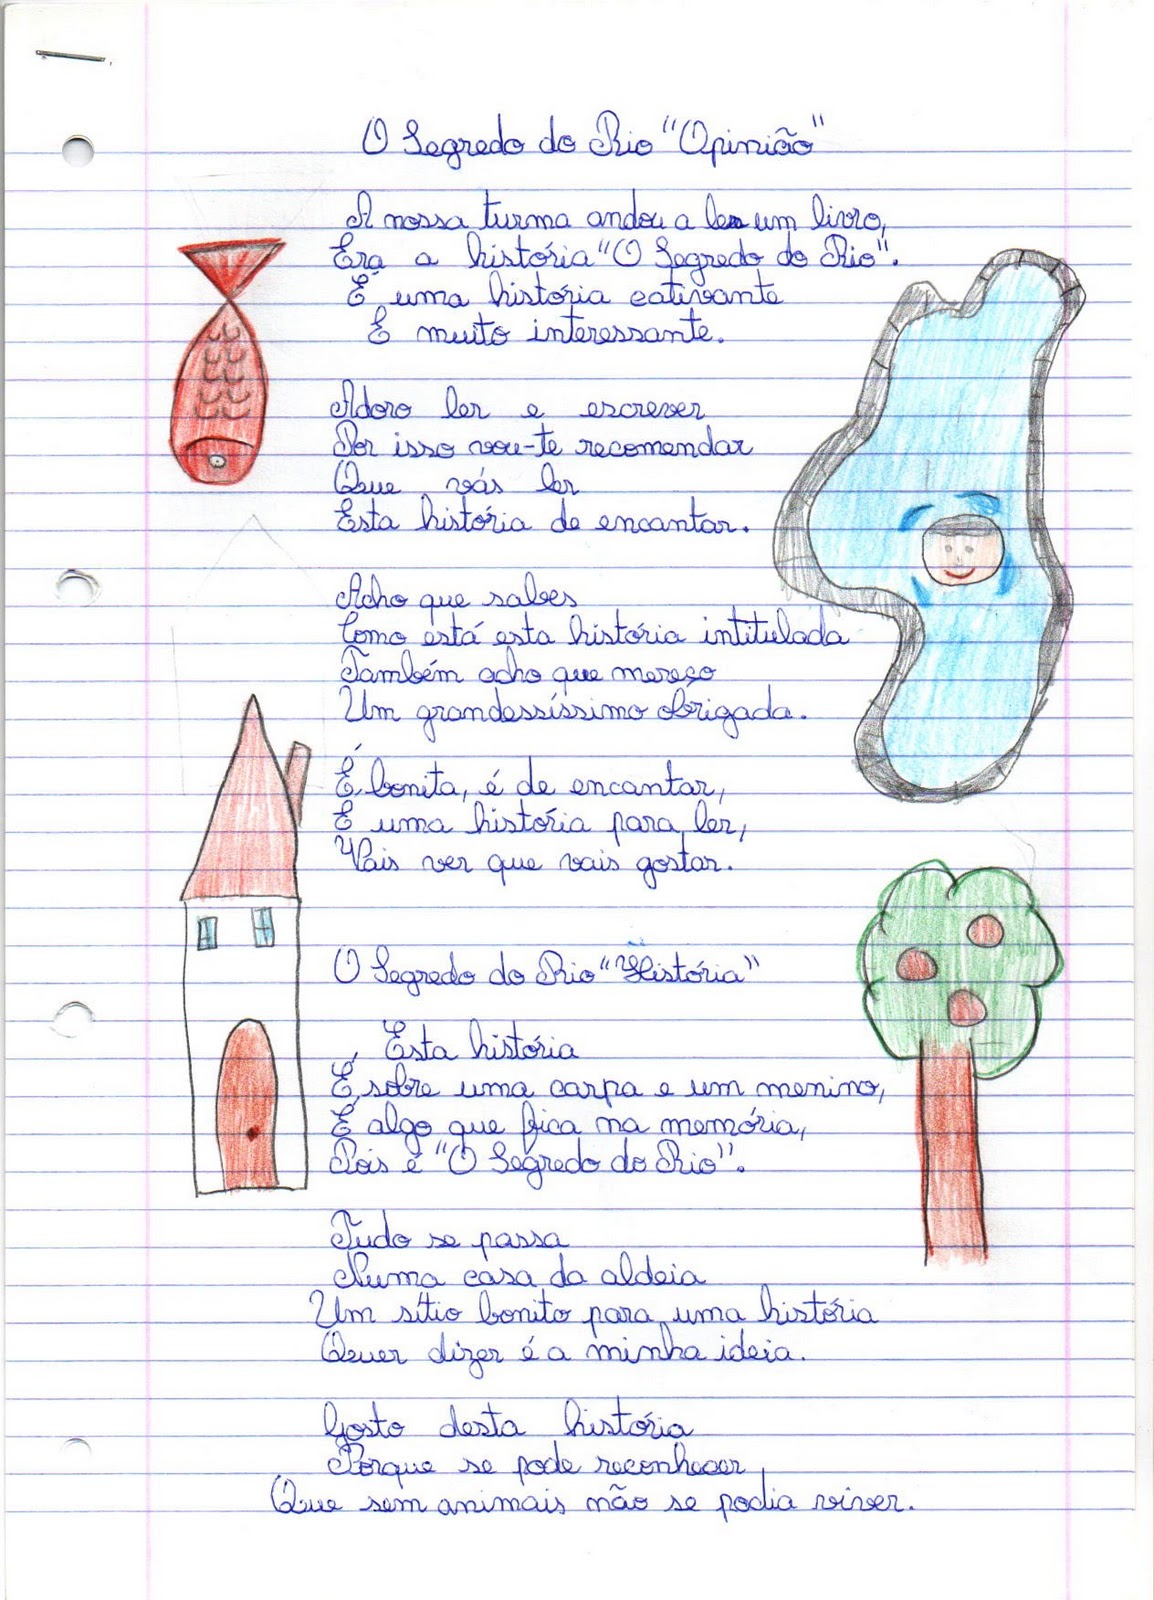 O Segredo do Rio "Opinião"
A nossa turma andou a ler um livro,
Era a história "O Segredo do Rio".
É uma história cativante
E muito interessante.
Adoro ler e escrever
Por isso vou-te recomendar
Que vás ler
Esta história de encantar.
Acho que sabes
Como está esta história intitulada
Também acho que mereço
Um grandessíssimo obrigada.
É bonita, é de encantar,
É uma história para ler,
Vais ver que vais gostar.
O Segredo do Rio "História"
Esta história
É sobre uma carpa e um menino,
É algo que fica na memória,
Pois é "O Segredo do Rio".
Tudo se passa
Numa casa da aldeia
Um sítio bonito para uma história
Quer dizer é a minha ideia.
Gosto desta história
Porque se pode reconhecer,
Que sem animais não se podia viver.